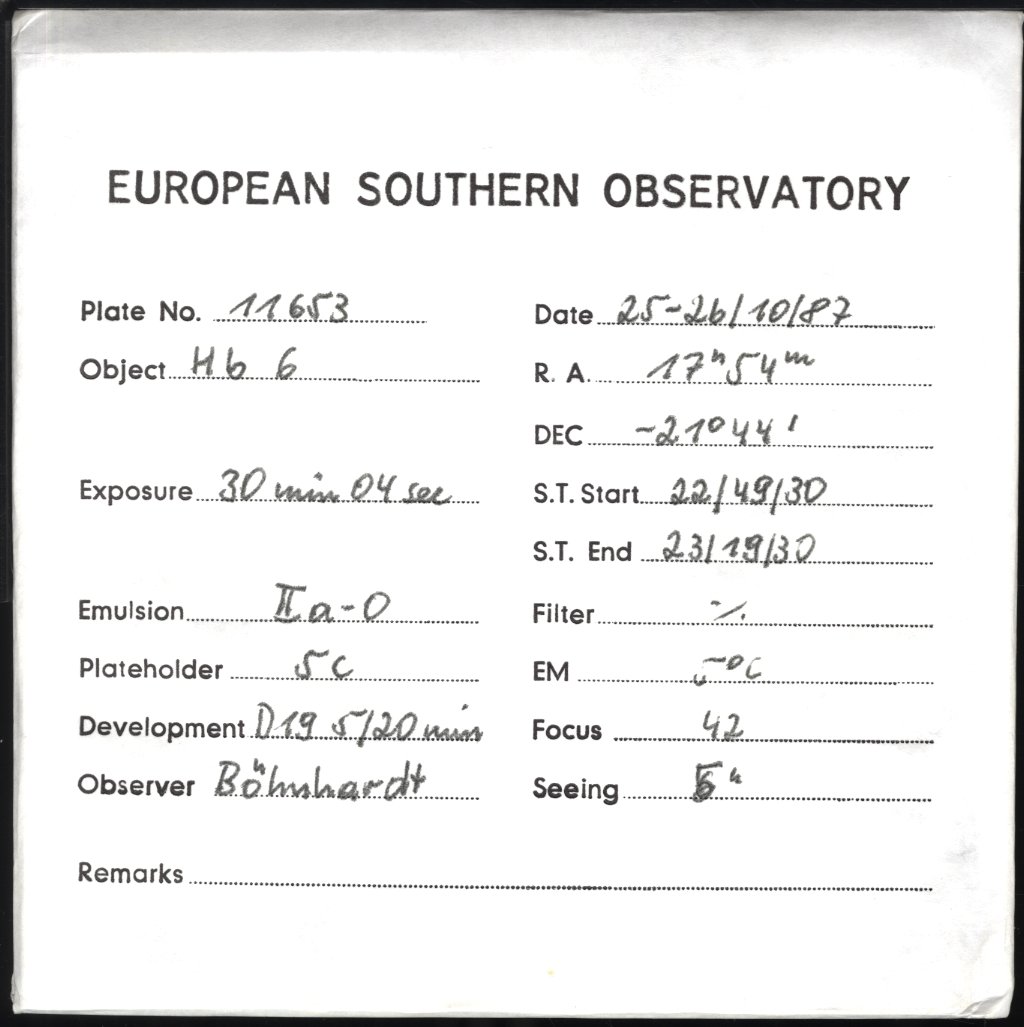 EUROPEAN SOUTHERN OBSERVATORY
Plate No. 11653 Date 25-26/10/87
Object Hb 6 R. A. 17h54m
DEC -21°44'
Exposure 30 min 04 sec S.T. Start 22/49/30
S.T. End 23/19/30
Emulsion IIa-O Filter ·/.
Plateholder 5C EM 5°C
Development D19 5/20 min Focus 42
Observer Böhnhardt Seeing "
Remarks